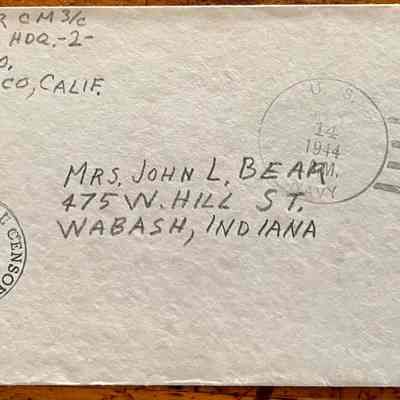 R C M 3/C
HDQ.-2-
O.
CO, CALIF.
U. S.
14
1944
M.
NAVY
MRS. JOHN L. BEAR
475 W. HILL ST.
WABASH, INDIANA
CENSOR